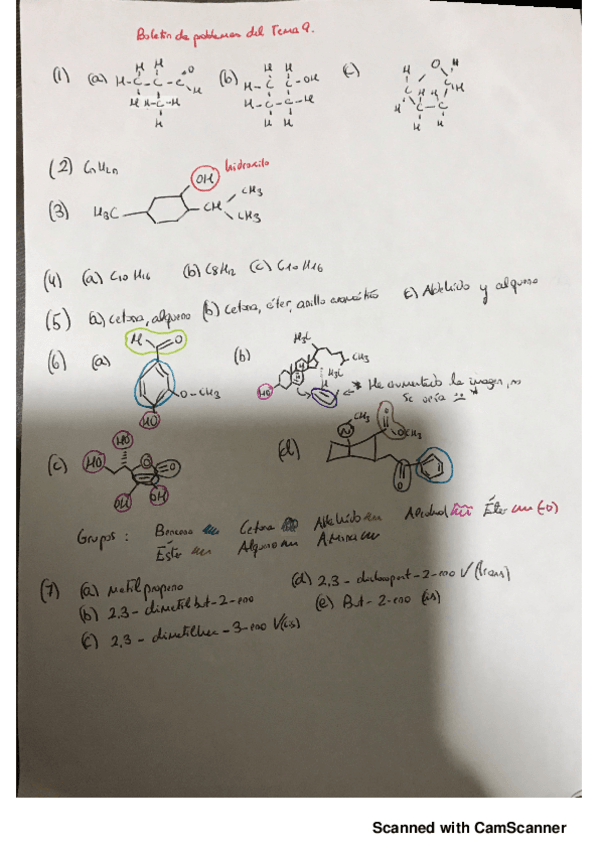 Boletín de problemas del Tema 9.
(1) (a) (b) (c)
(2) CnH2n
OH hidroxilo
(3) H3C CH CH3 CH3
(4) (a) C10H16 (b) C8H12 (c) C10H16
(5) (a) Cetona, alqueno (b) Cetona, éter, anillo aromático c) Aldehído y alqueno
(6) (a) H O O-CH3 HO
(b) H3C CH3 H3C H HO * He aumentado la imagen, no se veía
(c) HO HO O O OH OH
(d) CH3 N O OCH3 O
Grupos: Benceno Cetona Aldehído Alcohol Éter (-O)
Éster Alqueno Amina
(7) (a) Metilpropeno
(b) 2,3-dimetilbut-2-eno
(c) 2,3-dimetilhex-3-eno V(cis)
(d) 2,3-dicloropent-2-eno V(trans)
(e) But-2-eno (cis)
Scanned with CamScanner